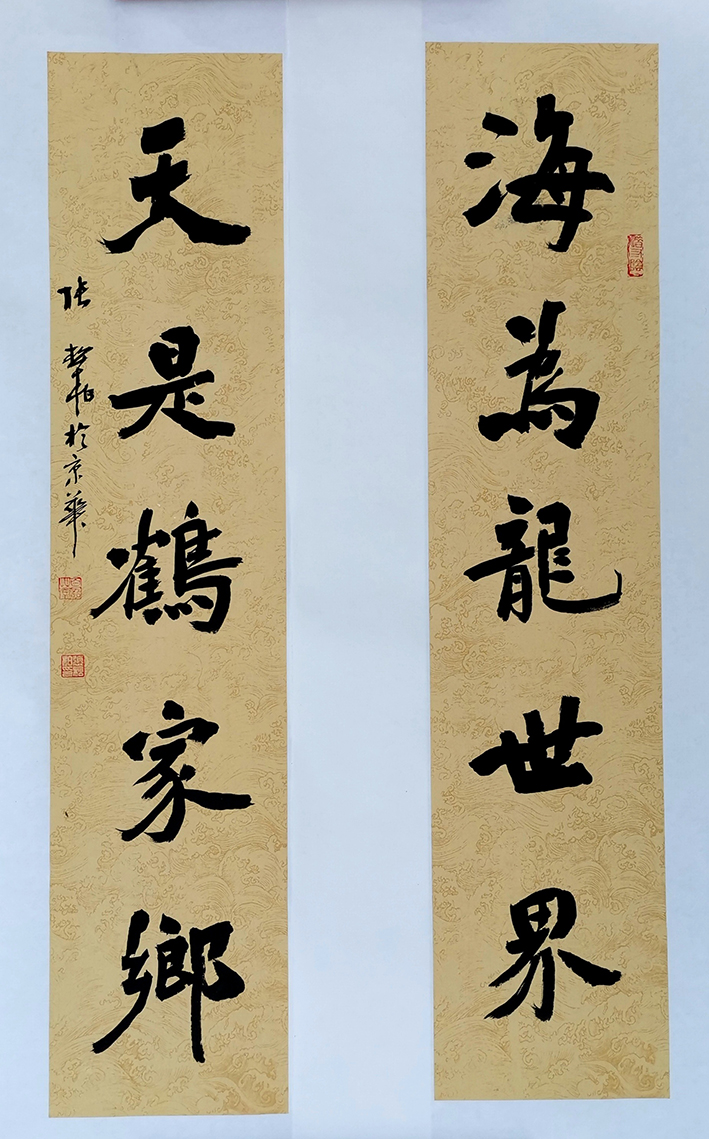 海為龍世界
天是鶴家鄉
張 於京華